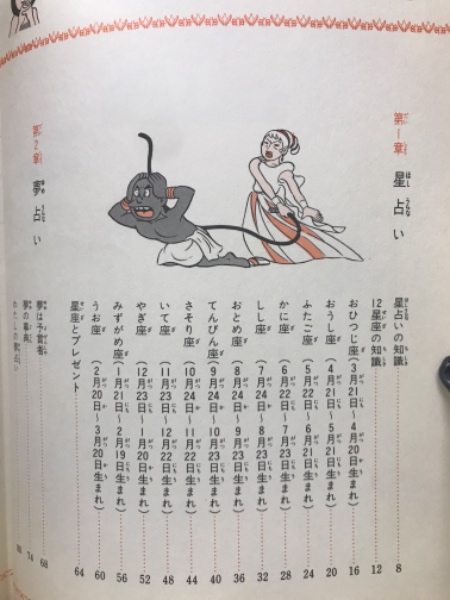 第1章 星占い
星占いの知識 8
12星座の知識 12
おひつじ座(3月21日〜4月20日生まれ) 16
おうし座(4月21日〜5月21日生まれ) 20
ふたご座(5月22日〜6月21日生まれ) 24
かに座(6月22日〜7月23日生まれ) 28
しし座(7月24日〜8月23日生まれ) 32
おとめ座(8月24日〜9月23日生まれ) 36
てんびん座(9月24日〜10月23日生まれ) 40
さそり座(10月24日〜11月22日生まれ) 44
いて座(11月23日〜12月22日生まれ) 48
やぎ座(12月23日〜1月20日生まれ) 52
みずがめ座(1月21日〜2月19日生まれ) 56
うお座(2月20日〜3月20日生まれ) 60
星座とプレゼント 64
第2章 夢占い
夢は予言者 68
夢の事典 74